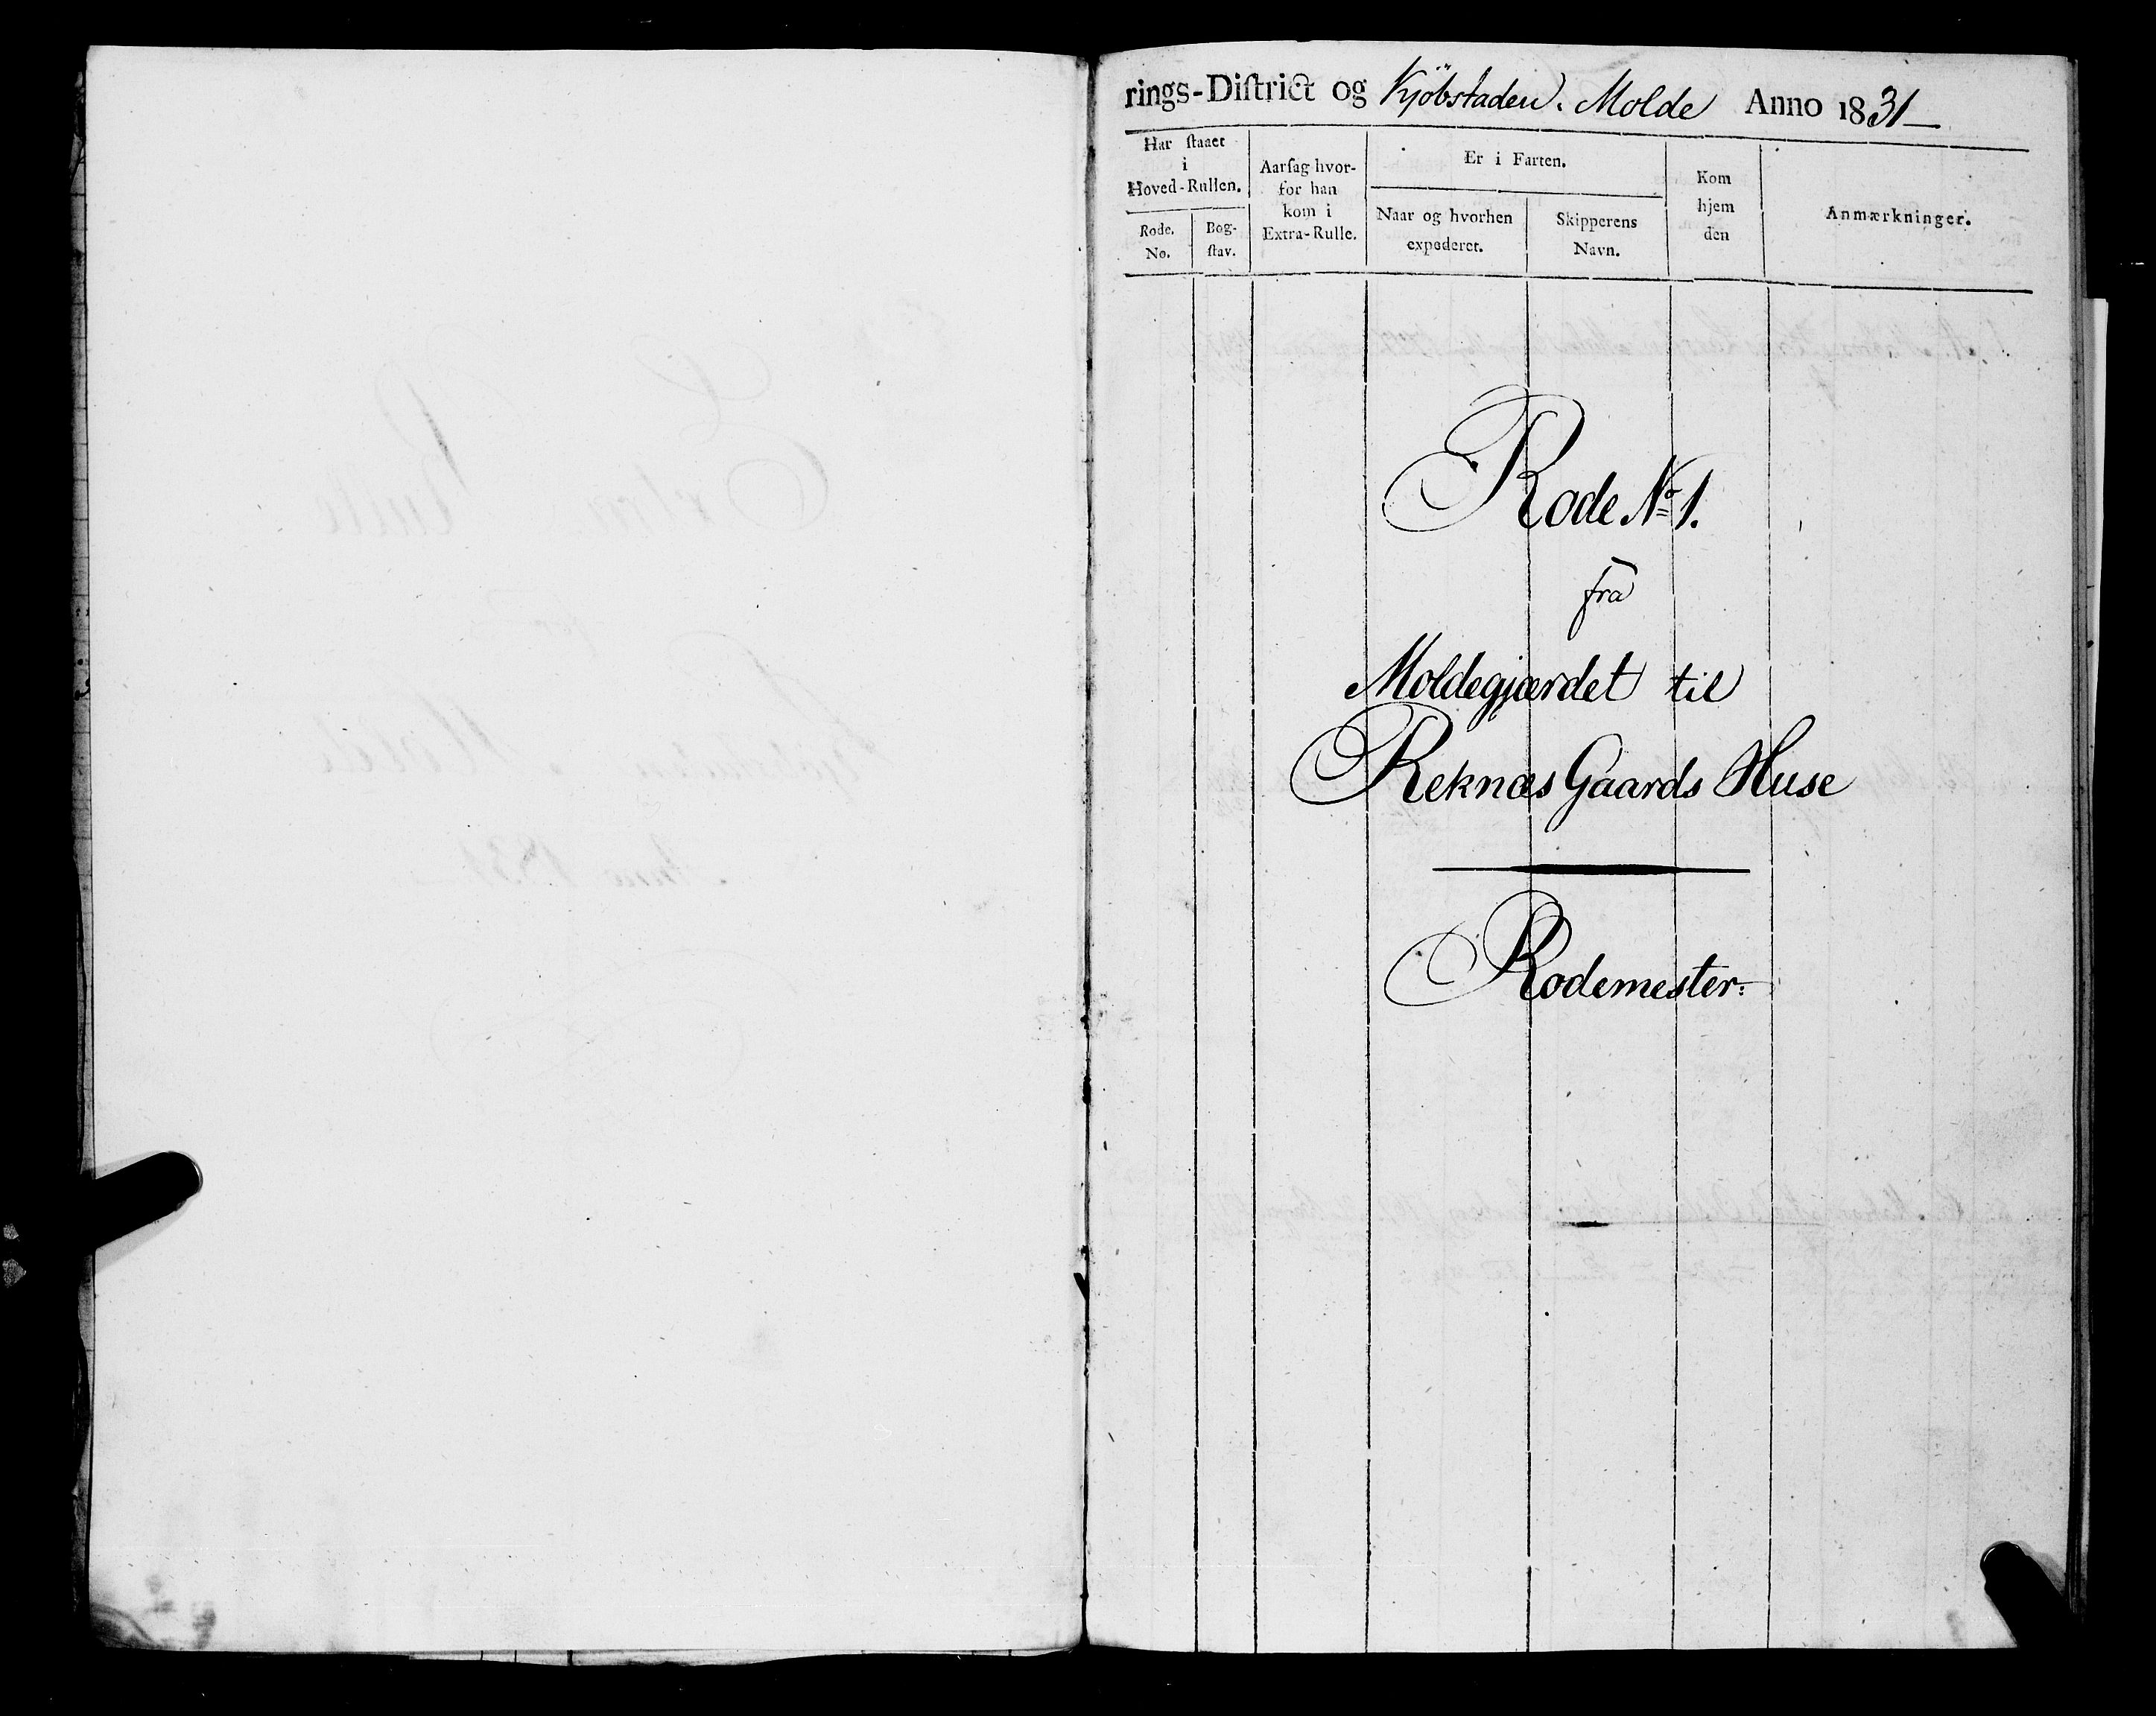 rings-Diſtrict og Kjöbstaden Molde Anno 1831
Har ſtaaet
i
Hoved-Rullen.
Rode.
No.
Bog-
ſtav.
Aarſag hvor-
for han
kom i
Extra-Rulle.
Er i Farten.
Naar og hvorhen
expederet.
Skipperens
Navn.
Kom
hjem
den
Anmærkninger.
Rode No 1.
fra
Moldegjærdet til
Reknæs Gaards Huse
Rodemester: